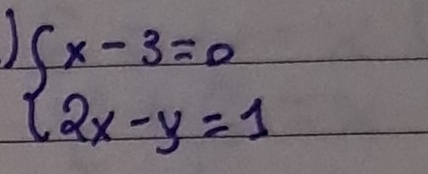 ) { x - 3 = 0
2x - y = 1